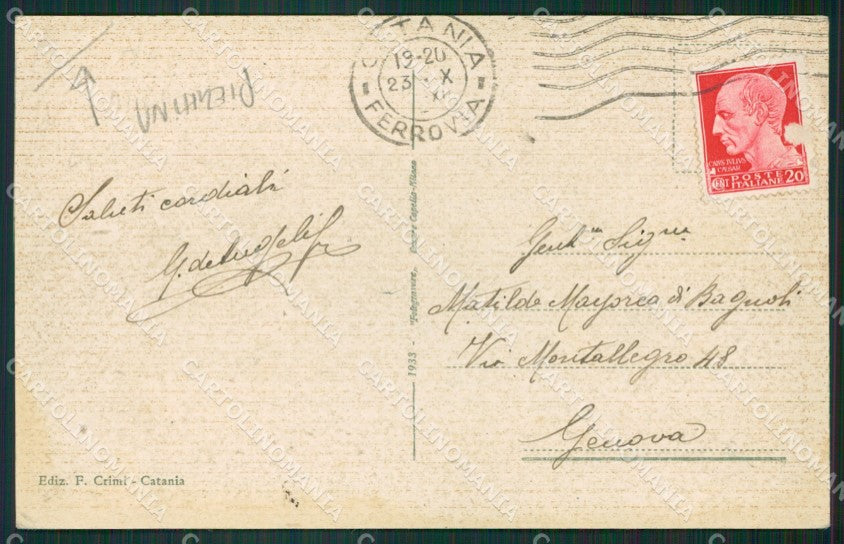 CATANIA
19-20
23 · X
FERROVIA
CAIVS IVLIVS
CAESAR
CENT POSTE 20
ITALIANE
Saluti cordiali
Gent.ma Sig.na
Matilde Mayorca di Bagnoli
Via Montallegro 48
Genova
1933 - "Fotogravure,
Ediz. F. Crimi - Catania
CARTOLINOMANIA